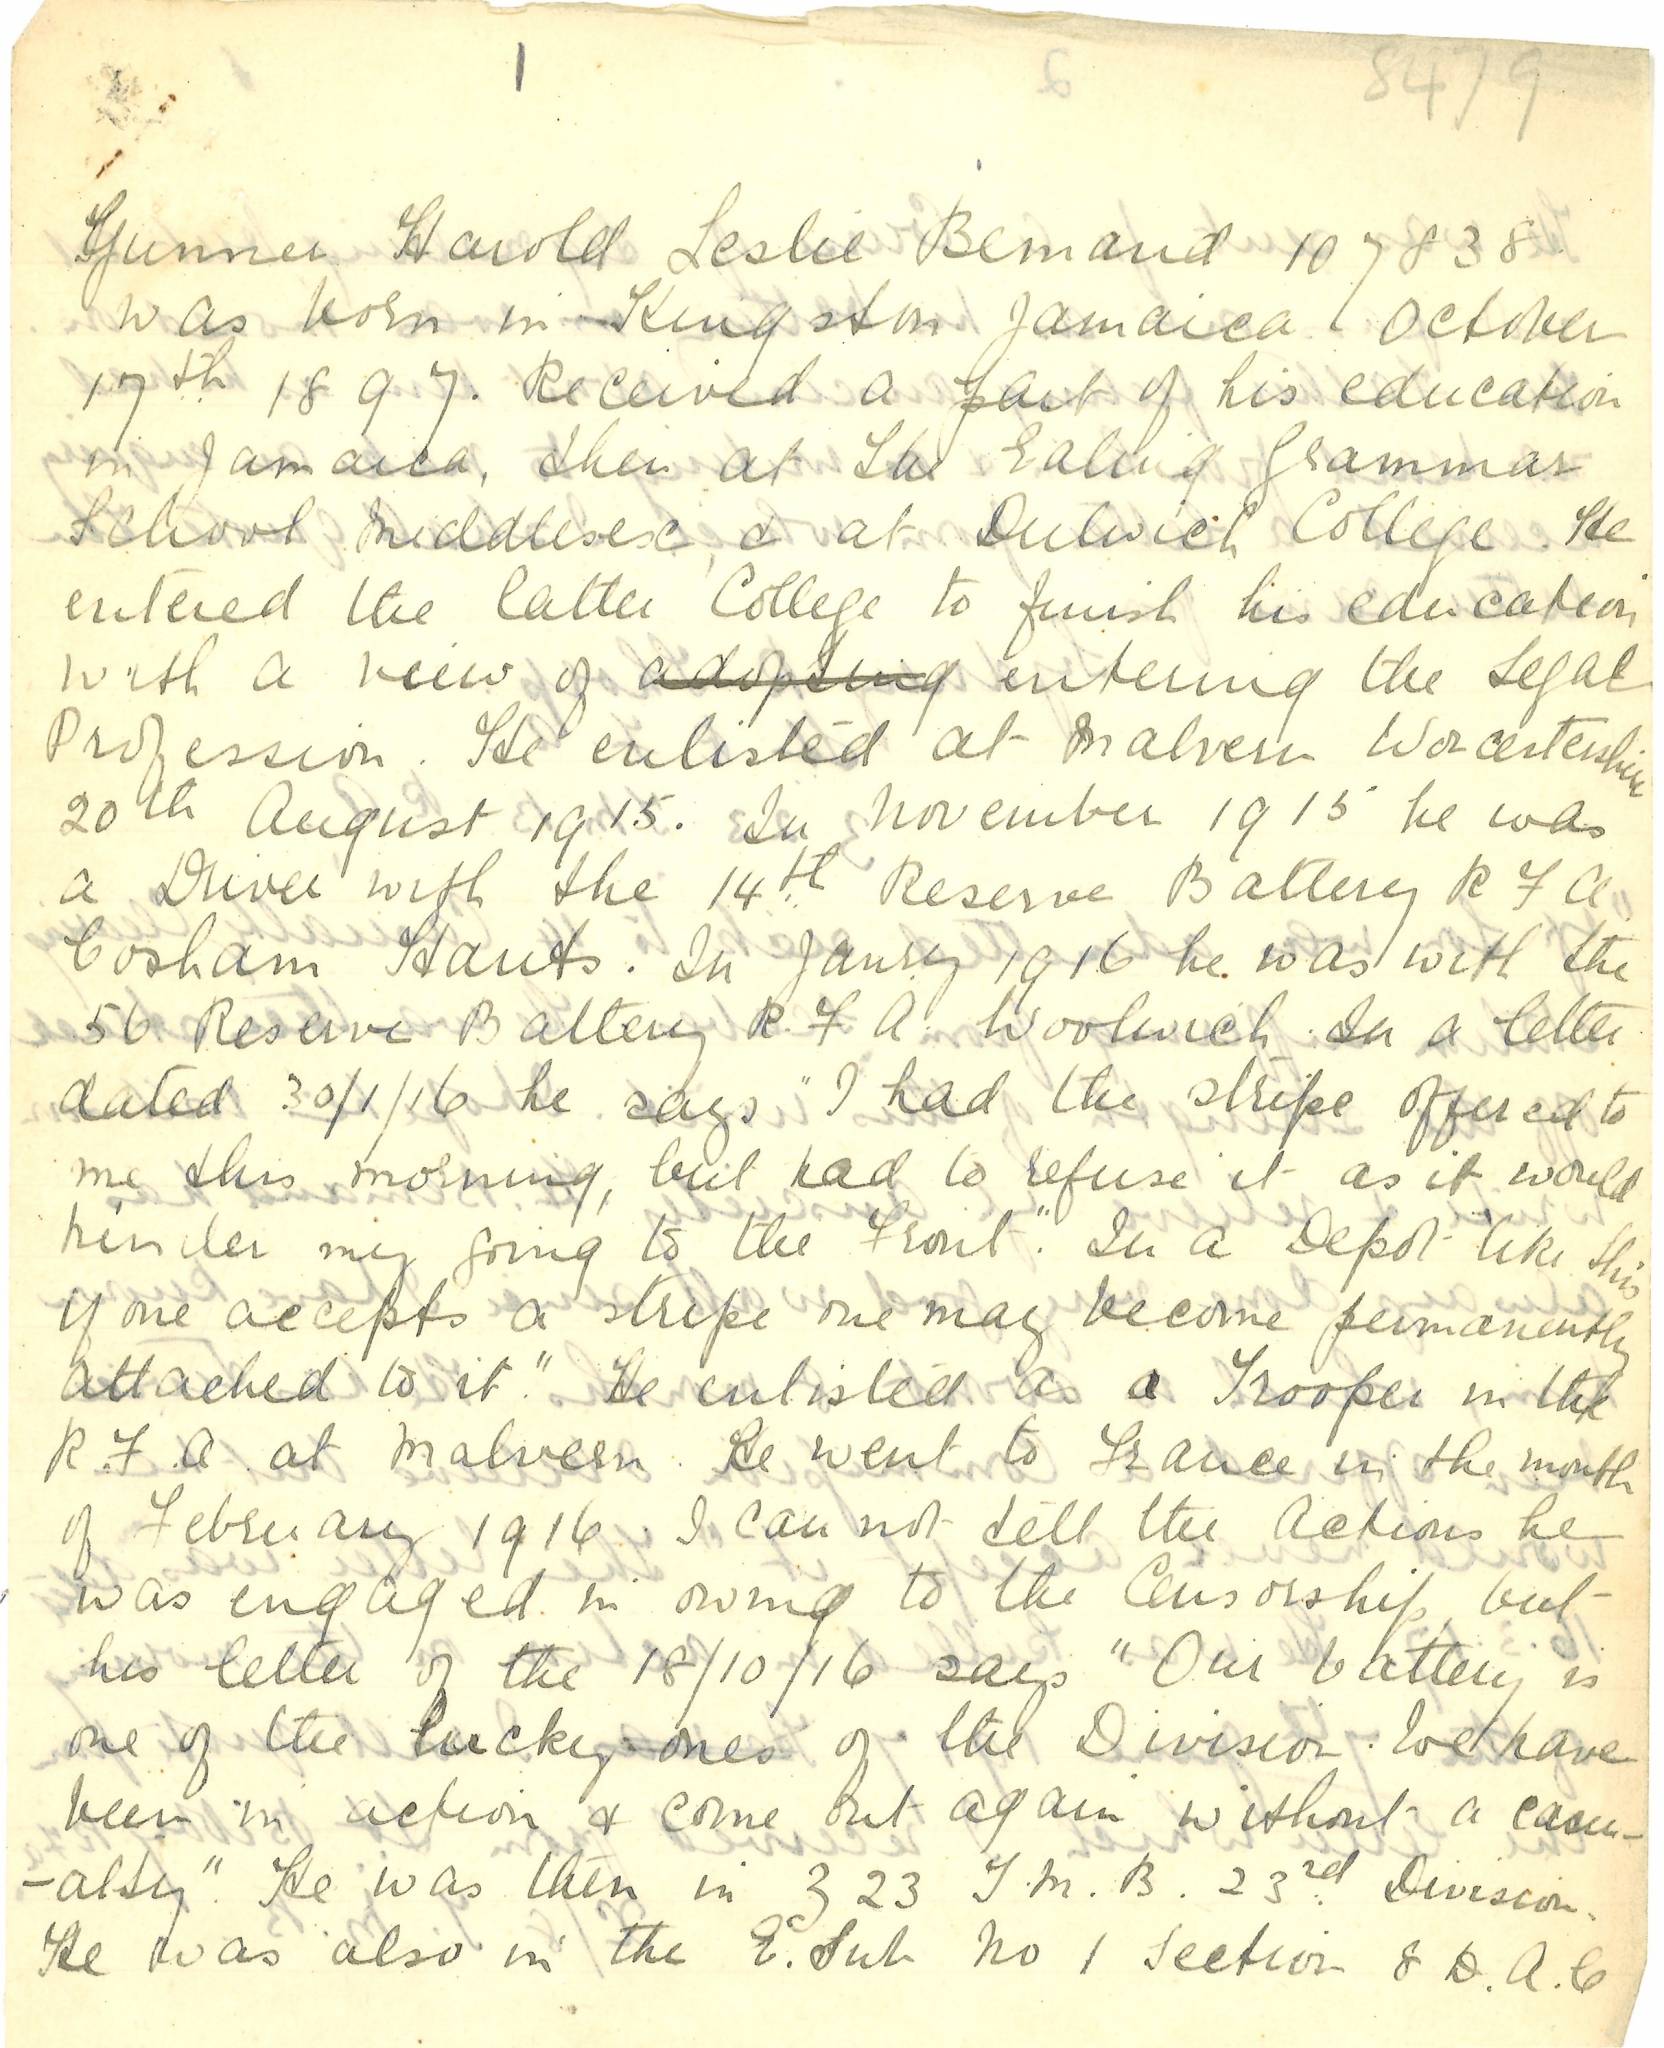 1
8479
Gunner Harold Leslie Bemand 107838
was born in Kingston Jamaica October
17th 1897. Received a part of his education
in Jamaica, then at the Ealing Grammar
School Middlesex, & at Dulwich College. He
entered the latter College to finish his education
with a view of adopting entering the Legal
Profession. He enlisted at Malvern Worcestershire
20th August 1915. In November 1915 he was
a Driver with the 14th Reserve Battery R F A
Cosham Hants. In Janry 1916 he was with the
56 Reserve Battery R. F A. Woolwich. In a letter
dated 30/1/16 he says "I had the stripe offered to
me this morning, but had to refuse it as it would
hinder my going to the Front". In a Depot like this
if one accepts a stripe one may become permanently
attached to it." He enlisted as a Trooper in the
R. F. A. at Malvern. He went to France in the month
of February 1916. I can not tell the Actions he
was engaged in owing to the Censorship, but
his letter of the 18/10/16 says "Our battery is
one of the lucky ones of the Division. We have
been in action & come out again without a casu-
-alty". He was then in Z 23 T. M. B. 23rd Division.
He was also in the E. Sub No 1 Section 8 D. A. C